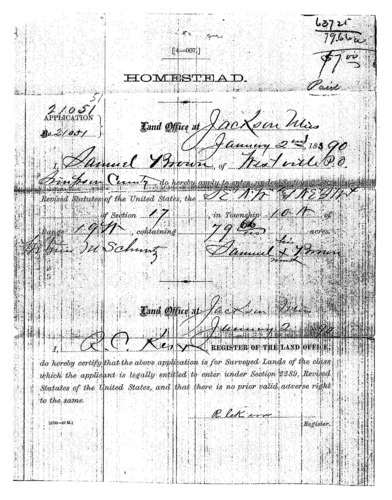 637 25
79.66
$7 00
Paid
[4—007.]
HOMESTEAD.
21051
51
APPLICATION
No. 21051
Land Office at Jackson Miss
January 2nd 1890
I, Samuel Brown, of Westville P.O.
Simpson County, do hereby apply to
Revised Statutes of the United States, the
of Section 17, in Township 10 N of
Range 19 W, containing 79 66/100 acres.
his
Samuel X Brown
mark
Land Office at Jackson Miss
January 2 90
I, R. C. Kerr, REGISTER OF THE LAND OFFICE,
do hereby certify that the above application is for Surveyed Lands of the class
which the applicant is legally entitled to enter under Section 2289, Revised
Statutes of the United States, and that there is no prior valid adverse right
to the same.
R C Kerr
Register.